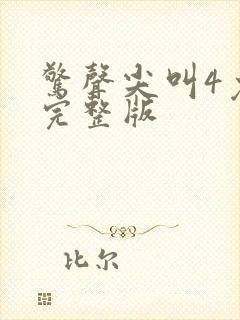 驚聲尖叫4
完整版
比尔